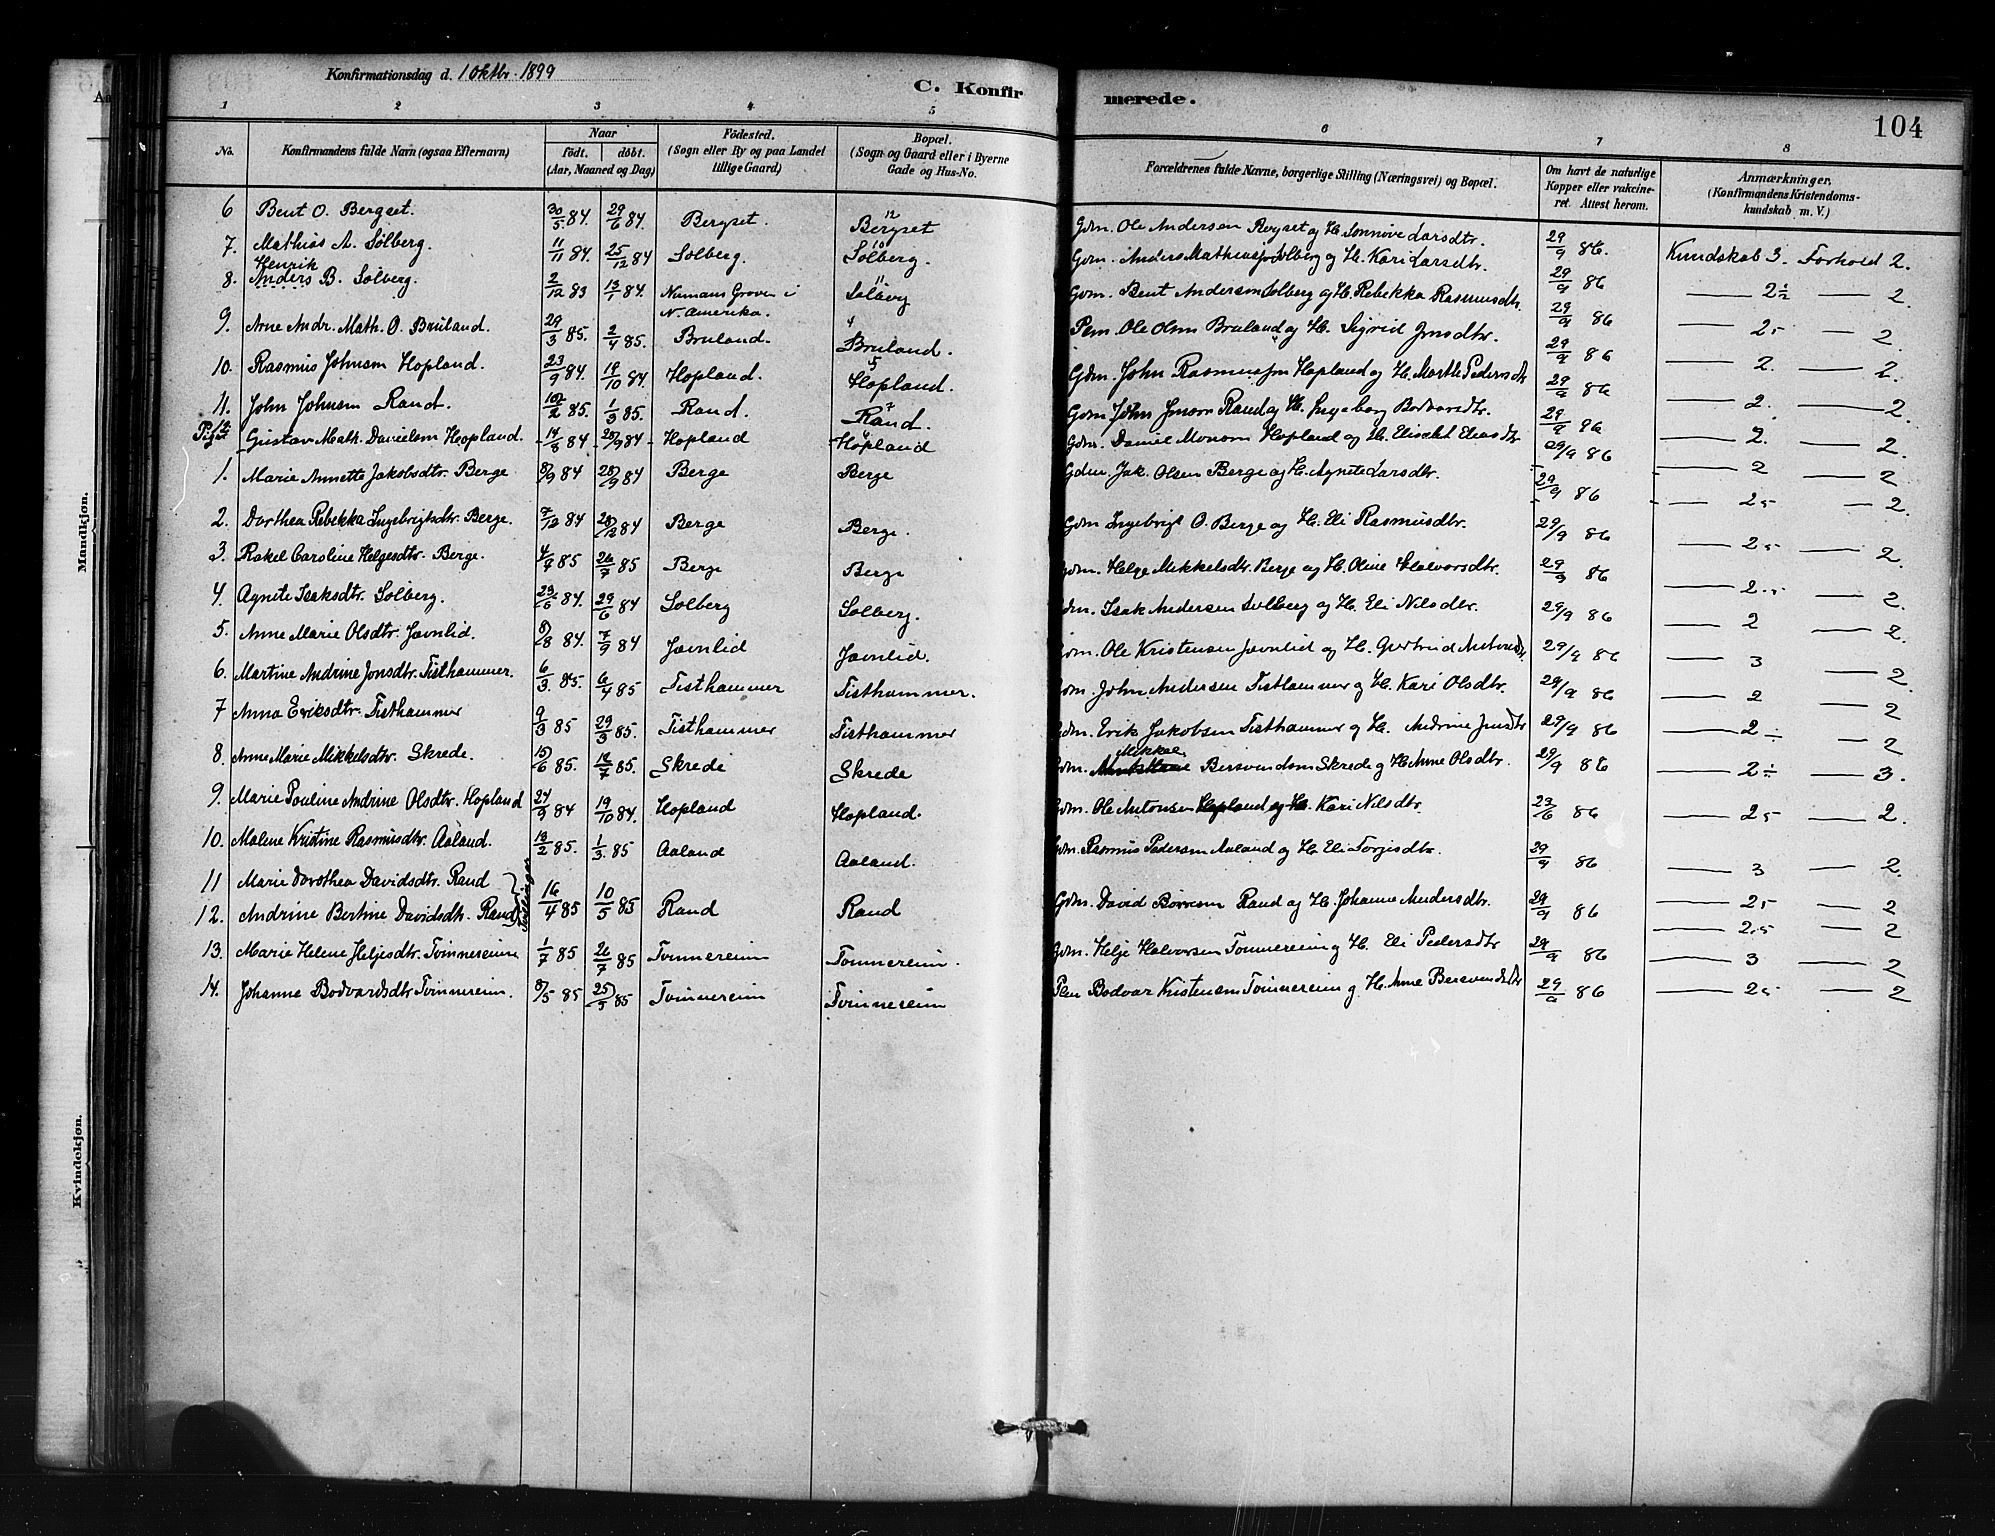 Konfirmationsdag d. 1 Oktbr. 1899
C. Konfirmerede.
104
1 2 3 4 5 6 7 8
No.
Konfirmandens fulde Navn (ogsaa Efternavn)
Naar
født. døbt.
(Aar, Maaned og Dag)
Fødested.
(Sogn eller By og paa Landet
tillige Gaard)
Bopæl.
(Sogn og Gaard eller i Byerne
Gade og Hus-No.
Forældrenes fulde Navne, borgerlige Stilling (Næringsvei) og Bopæl.
Om havt de naturlige
Kopper eller vakcine-
ret. Attest herom.
Anmærkninger,
(Konfirmandens Kristendoms-
kundskab m. V.)
6 Bent O. Bergset. 30/5 84. 29/6 84. Bergset. 12 Bergset Gdm. Ole Andersen Bergset og H. Sønnøve Larsdtr. 29/9 86. Kundskab 3. Forhold 2.
7. Mathias A. Solberg. 11/11 84. 25/12 84 Solberg. 10 Solberg. Gdm. Anders Mathiassen Solberg og H. Kari Larsdtr. 29/9 86 2½ 2.
8. Henrik Anders B. Solberg. 2/12 83 13/1 84. Numans Groven i N. Amerika. 11 Solberg Gdm. Bent Andersen Solberg og H. Rebekka Rasmusdtr. 29/9 86 2,5 2.
9. Arne Andr. Math. O. Bruland. 29/3 85. 2/4 85. Bruland. 4 Bruland. Ole Olsen Bruland og H. Sigrid Jonsdtr. 29/9 86 2. 2.
10. Rasmus Johnsen Hopland. 23/9 84. 19/10 84 Hopland. 5 Hopland. Gdm. John Rasmussen Hopland og H. Marthe Pedersdtr 29/9 86 2. 2.
11. John Johnsen Rand. 2 85. 1/3 85. Rand. 7 Rand. Gdm John Jonson Rand og H. Ingeborg Bodvarsdtr. 29/9 86 2. 2.
12 Gustav Math. Danielsen Hopland. 14/8 84 28/9 84 Hopland 6 Hopland Gdm. Daniel Monsen Hopland og H. Elisabet Eliasdtr 29/9 86 2 2
Piger
1. Marie Annette Jakobsdtr. Berge 8/9 84 28/9 84 Berge Berge Gdm. Jak. Olsen Berge og H. Agnete Larsdtr. 29/9 86 2,5 2.
2. Dorthea Rebekka Ingebrigtsdtr. Berge. 7/12 84 28/12 84 Berge Berge. Gdm Ingebrigt O. Berge og H. Eli Rasmusdtr. 29/9 86 2,5 2.
3. Rakel Caroline Helgesdtr. Berge. 4/7 85 26/7 85 Berge Berge Gdm. Helge Mikkelsdtr. Berge og H. Oline Halvorsdtr. 29/9 86 2,5 2.
4. Agnete Isaksdtr. Solberg. 23/6 84. 29/6 84 Solberg Solberg. Gdm. Isak Andersen Solberg og H. Eli Nilsdtr. 29/9 86 2 2.
5. Anne Marie Olsdtr. Jevnlid. 8/8 84. 7/9 84 Jevnlid Jevnlid. Gdm. Ole Kristensen Jevnlid og H. Gjertrud Antonsdtr. 29/9 86 3 2.
6. Martine Andrine Jonsdtr. Tisthammer. 6/3. 85. 6/4 85 Tisthammer Tisthammer. Gdm. John Andersen Tisthammer og H. Kari Olsdtr. 29/9 86 2 2
7 Anna Eriksdtr. Tisthammer 9/3 85 29/3 85. Tisthammer Tisthammer Gdm. Erik Jakobsen Tisthammer og H. Andrine Jonsdtr 29/9 86 2÷ 2
8. Anne Marie Mikkelsdtr. Skrede. 15/6 85. 12/7 85. Skrede Skrede Gdm. Mikkel Bersvendsen Skrede og H. Anne Olsdtr. 29/9 86 2÷ 3.
9. Marie Pouline Andrine Olsdtr. Hopland 24/9 84 19/10 84. Hopland Hopland. Gdm. Ole Antonsen Hopland og H. Kari Nilsdtr. 23/6 86 2,5 2.
10. Malene Kristine Rasmusdtr. Aaland. 13/2 85. 1/3. 85 Aaland Aaland. Gdm. Rasmus Pedersen Aaland og H. Eli Torjisdtr. 29/9 86 3 2.
11 Marie Dorothea Davidsdtr. Rand } Tvillinger 16/4 85 10/5 85 Rand Rand Gdm. David Børresen Rand og H. Johanne Andersdtr. 29/9 86 2,5 2
12. Andrine Bertine Davidsdtr. Rand 2,5 2
13. Marie Helene Heljesdtr. Tvinnereim 1/7 85 26/7 85 Tvinnereim Tvinnereim. Gdm. Helje Halvorsen Tvinnereim og H. Eli Pedersdtr 29/9 86 3 2
14. Johanne Bodvardsdtr Tvinnereim. 8/5 85 25/5 85 Tvinnereim Tvinnereim Bodvar Kristensen Tvinnereim og H. Anne Bersvendsdtr 29/9 86 2,5 2
Mandkjøn.
Kvindekjøn.